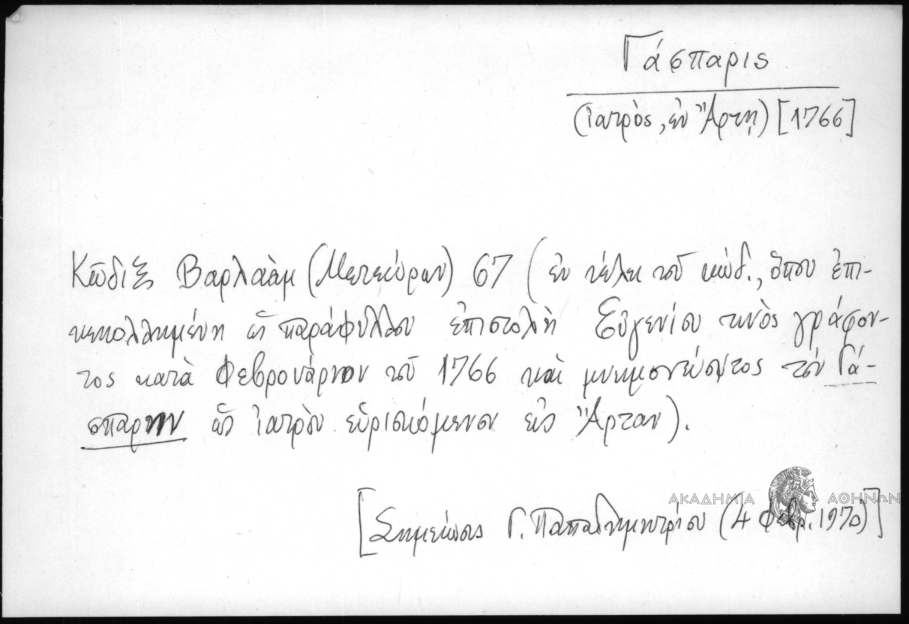 Γάσπαρις
(ἰατρὸς, ἐν Ἄρτῃ) [1766]
Κῶδιξ Βαρλαὰμ (Μετεώρων) 67 (ἐν τέλει τοῦ κώδ., ὅπου ἐπι-
κεκολλημένη ὡς παράφυλλον ἐπιστολὴ Εὐγενίου τινὸς γράφον-
τος κατὰ Φεβρουάριον τοῦ 1766 καὶ μνημονεύοντος τὸν Γά-
σπαριν ὡς ἰατρὸν εὑρισκόμενον εἰς Ἄρταν).
ΑΚΑΔΗΜΙΑ ΑΘΗΝΩΝ
[Σημείωσις Γ. Παπαδημητρίου (4 Φεβρ. 1970)]